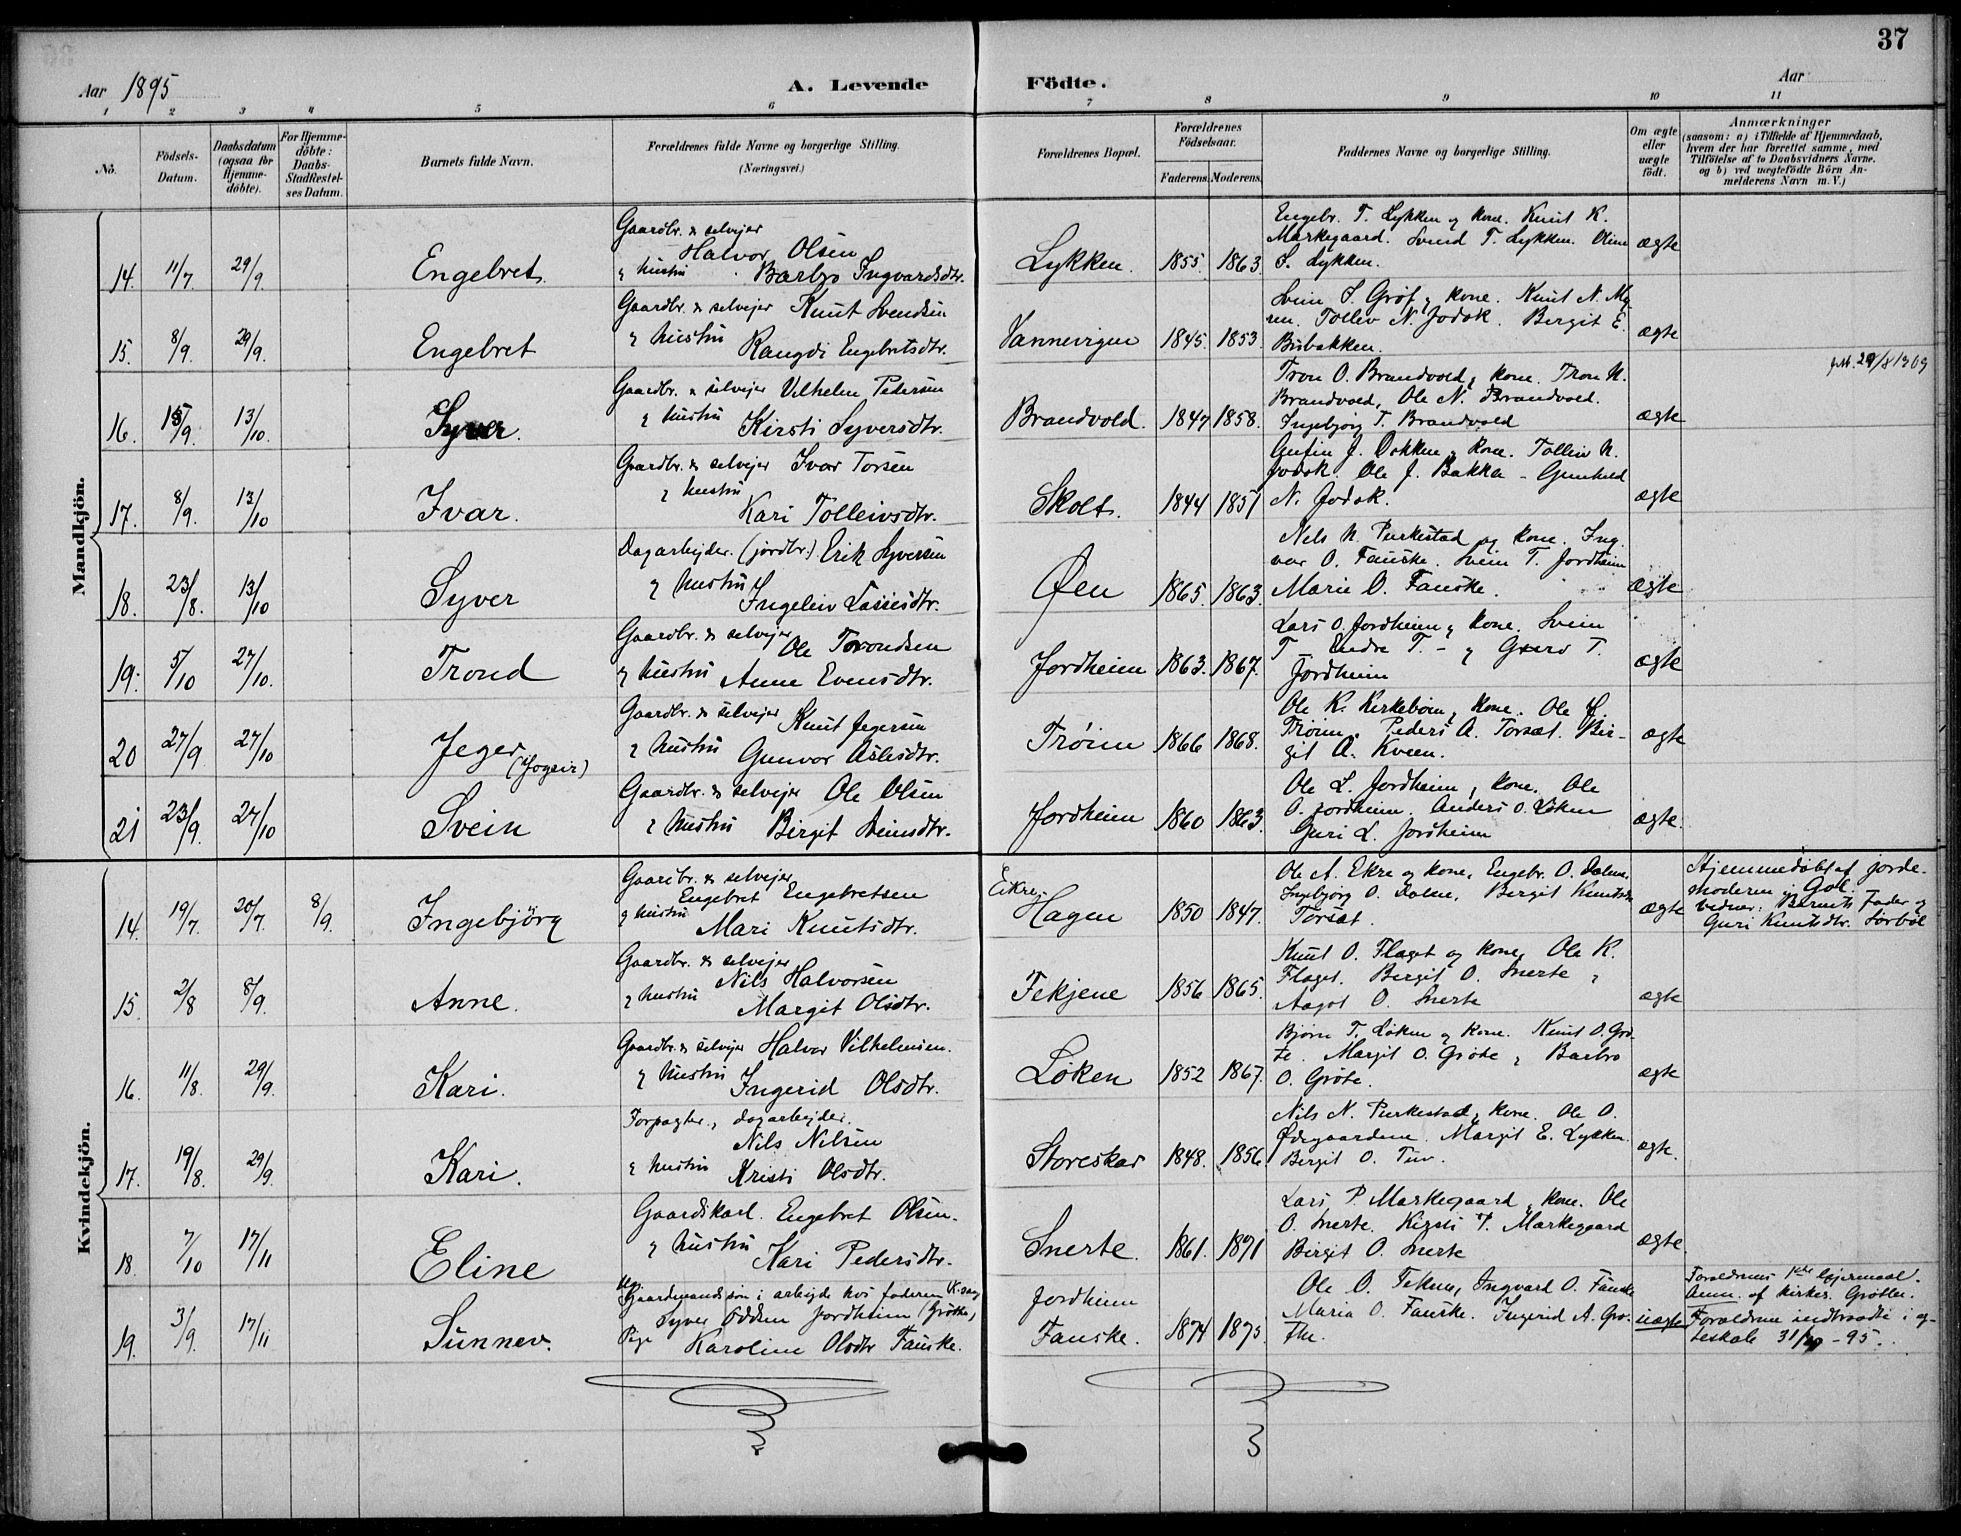 37
Aar 1895
A. Levende
Födte.
Aar
1 2 3 4 5 6 7 8 9 10 11
No.
Födsels-
Datum.
Daabsdatum
(ogsaa for
Hjemme-
döbte).
For Hjemme-
döbte:
Daabs-
Stadfæstel-
ses Datum.
Barnets fulde Navn.
Forældrenes fulde Navne og borgerlige Stilling.
(Næringsvei.)
Forældrenes Bopæl.
Forældrenes
Födselsaar.
Faderens. Moderens.
Faddernes Navne og borgerlige Stilling.
Om ægte
eller
uægte
født.
Anmærkninger
(saasom: a) i Tilfælde af Hjemmedaab,
hvem der har forrettet samme, med
Tilföielse af to Daabsvidners Navne,
og b) ved uægtefödte Börn An-
melderens Navn m. V.)
Mandkjön.
14. 11/7 29/9 Engebret
Gaardbr. & selvejer
Halvor Olsen
& hustru Barbro Ingvardsdtr.
Lykken. 1855. 1863.
Engebr. T. Lykken og kone. Knut K.
Markegaard. Svend T. Lykken. Oline
S. Lykken.
ægte
15. 8/9. 29/9. Engebret
Gaardbr. & selvejer Knut Svendsen
& hustru Rangdi Engebretsdtr.
Vannevigen 1845. 1853.
Svein S. Grøf & kone. Knut N. My
ren. Tollev N. Jodok. Bergit E.
Bisbakken.
ægte
16. 15/9. 13/10. Syver.
Gaardbr. & selvejer Vilhelm Pedersen
& hustru Kirsti Syversdtr.
Brandvold. 1847 1858.
Tron O. Brandvold & kone. Tron N.
Brandvold, Ole N. Brandvold.
Ingebjörg T. Brandvold
ægte
17. 8/9. 13/10 Ivar.
Gaardbr. & selvejer Ivar Torsen
& hustru
Kari Tolleivsdtr.
Skolt. 1844 1851
J. Dokken & kone. Tolleiv N.
Jodok. Ole J. Bakka - Gunhild
N. Jodok.
ægte
18. 23/8. 13/10 Syver
Dagarbejder. (jordbr.) Erik Syversen
& hustru
Ingeleiv Lassesdtr.
Øen 1865. 1863.
Nels N. Purkestad og kone. Ing
var O. Fauske. Svein T. Jordheim
Marie O. Fauske.
ægte
19. 5/10 27/10. Trond
Gaardbr. & selvejer
Ole Torondsen
& hustru Anne Evensdtr.
Jordheim 1863. 1867.
Lars O. Jordheim & kone. Svein
T - Endre T. - & Guro T.
Jordheim
ægte
20 27/9 27/10 Jeger (Jogeir)
Gaardbr. & selvejer Knut Jegersen
& hustru Gunvor Aslesdtr.
Trøim 1866 1868.
Ole K. Kirkeboen & kone. Ole L.
Trøim. Peders A. Torsæt. Bir-
git A. Kveen.
ægte
21 23/9. 27/10 Svein
Gaardbr. & selvejer Ole Olsen
& hustru Birgit Sveinsdtr.
Jordheim 1860 1863.
Ole L. Jordheim & kone. Ole
O. Jordheim. Anders O. Løken
Guri L. Jordheim
ægte.
Kvindekjön.
14. 19/7. 20/7. 8/9. Ingebjörg
Gaardbr. & selvejer
Engebret Engebretsen
& hustru Mari Knutsdtr.
Eikre-
Hagen 1850 1847.
Ole A. Ekre og kone, Engebr. O. Dalene.
Ingebjörg O. Dalene, Bergit Knutsdtr
Torsæt.
ægte
Hjemmedöbt af jorde-
moderen i Gol.
vidner: Barnets Fader &
Guri Knutsdtr. Sørbøl
15. 2/8 8/9. Anne.
Gaardbr. & selvejer
Nils Halvorsen
& hustru Margit Olsdtr.
Fekjene 1856 1865.
Knut O. Flaget og kone, Ole K.
Flaget. Bergit O. Snerte &
Aagot O. Snerte
ægte
16. 11/8. 29/9. Kari.
Gaardbr. & selvejer Halvor Vilhelmsen.
& hustru Ingerid Olsdtr.
Løken 1852 1867.
Bjørn T. Løken og kone. Knut O. Grö-
te. Margit O. Gröte & Barbro
O. Gröte.
ægte
17. 19/8. 29/9. Kari.
Forpagter, dagarbejder.
Nils Nilsen
& hustru Kristi Olsdtr.
Storeskar 1848. 1856.
Nils N. Purkestad & kone. Ole O.
Ødegaarden. Margit E. Lykken.
Bergit O. Tuv.
ægte.
18. 7/10 17/11 Eline
Gaardskarl. Engebret Olsen.
& hustru
Kari Pedersdtr.
Snerte. 1861. 1871
Lars P Markegaard & kone. Ole
O. Snerte. Kirsti P. Markegaard
Birgit O. Snerte
ægte.
19. 3/9. 17/11 Sunnev.
Ug. Gaardmandssön i arbejde hos faderen K. sang
Syver Oddsen Jordheim (Grøthe)
Pige Karoline Olsdtr Fauske.
Jordheim
Fauske. 1874 1875.
Ole O. Fekene, Ingvard O. Fauske
Maria O. Fauske. Ingerid A. Grö-
the.
uægte
Forældrenes 1ste lejermaal.
Anm. af kirkes. Gröthe.
Forældrene indtraadte i æg-
teskab 31/10 - 95.